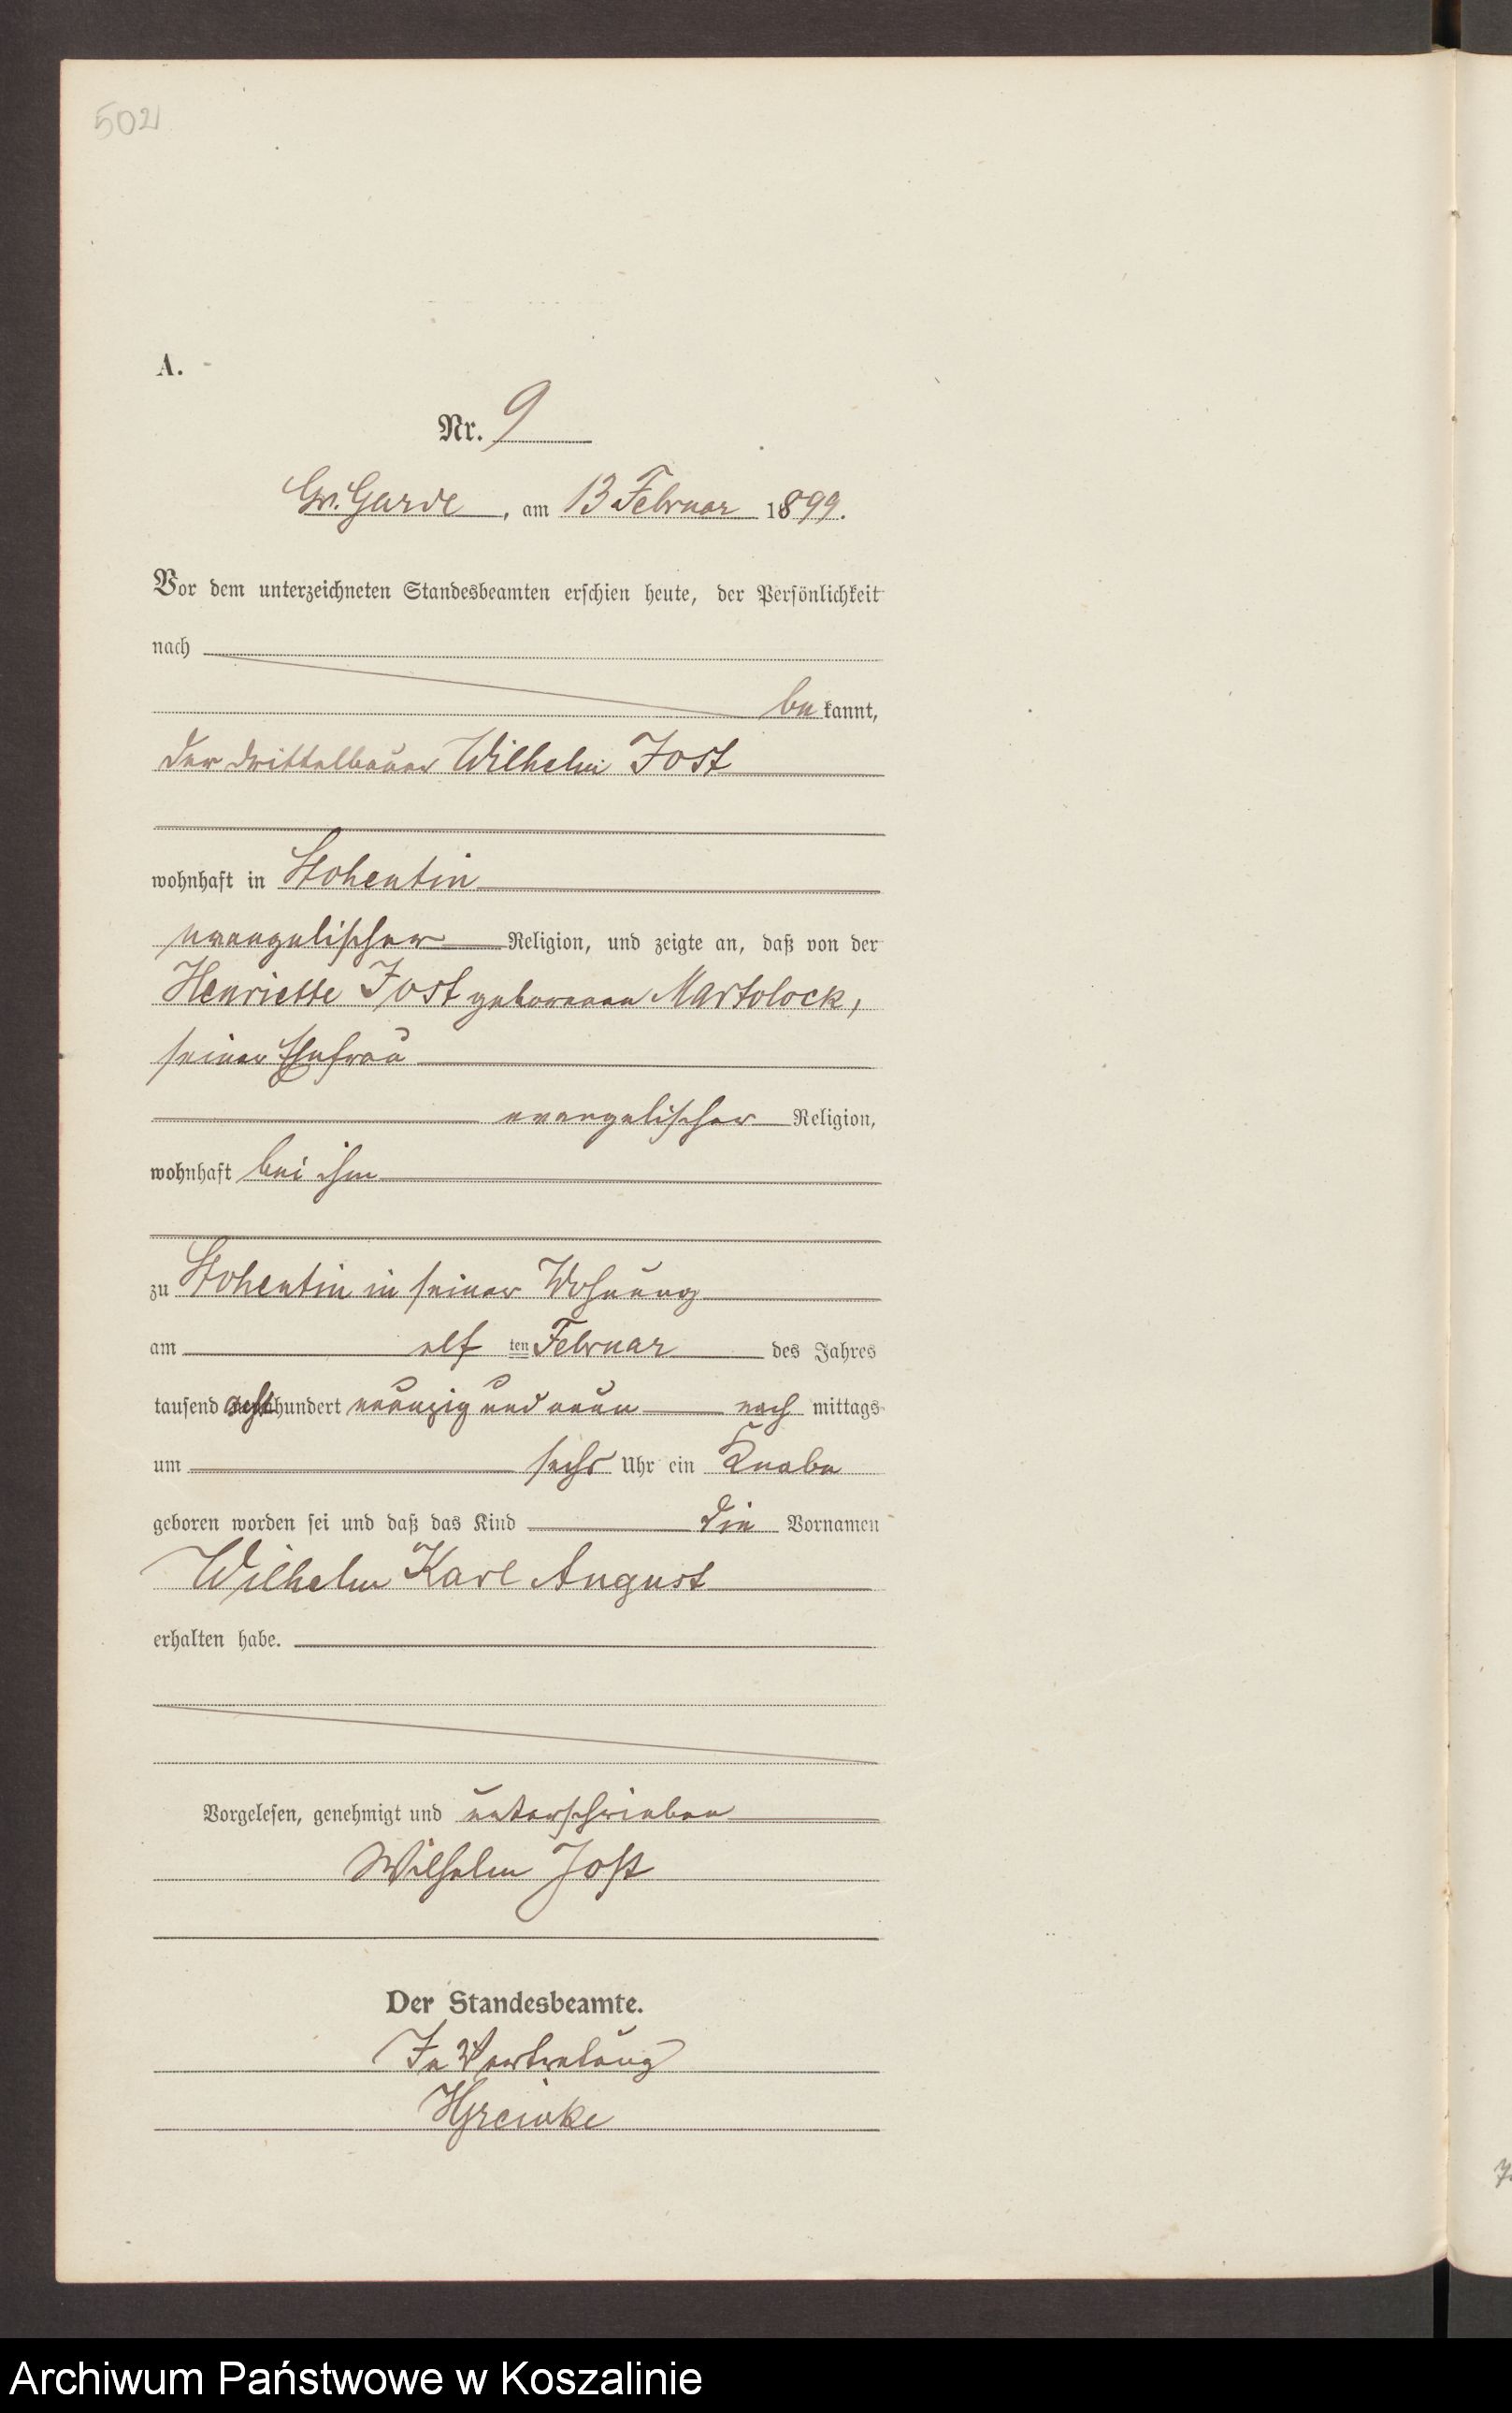 502
A.
Nr. 9
Gr. Garde, am 13 Februar 1899.
Vor dem unterzeichneten Standesbeamten erschien heute, der Persönlichkeit
nach
bekannt,
der Drittelbauer Wilhelm Jost
wohnhaft in Stohentin
evangelischer Religion, und zeigte an, daß von der
Henriette Jost geborenen Martolock,
seiner Ehefrau
evangelischer Religion,
wohnhaft bei ihm
zu Stohentin in seiner Wohnung
am elf ten Februar des Jahres
tausend achthundert neunzig und neun nach mittags
um sechs Uhr ein Knabe
geboren worden sei und daß das Kind die Vornamen
Wilhelm Karl August
erhalten habe.
Vorgelesen, genehmigt und unterschrieben
Wilhelm Jost
Der Standesbeamte.
In Vertretung
Archiwum Państwowe w Koszalinie